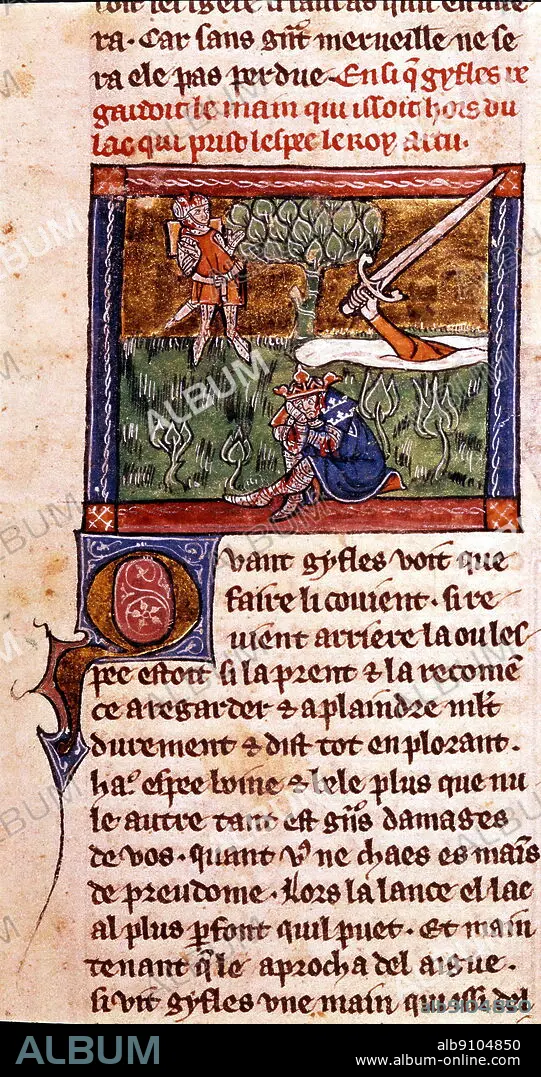 ra. Car sans gnt merveille ne se
ra ele pas perdue. Ensi q gyfles re
gardoit le main qui issoit hors du
lac qui prist lespee le roy artu.
Quant gyfles voit que
faire li couient. si re
uient arriere la ou les
pee estoit si la prent & la recomē
ce a regarder & a plaindre mlt
durement & dist tot en plorant.
ha. espee boine & bele plus que nu
le autre tant est gns damages
de vos. quant vos ne chaes es mains
de preudome. Lors la lance el lac
al plus pfont quil puet. Et main
tenant qle aprocha del aigue.
si vit gyfles vne main qui issi del
ALBUM
alb9104850
www.album-online.com